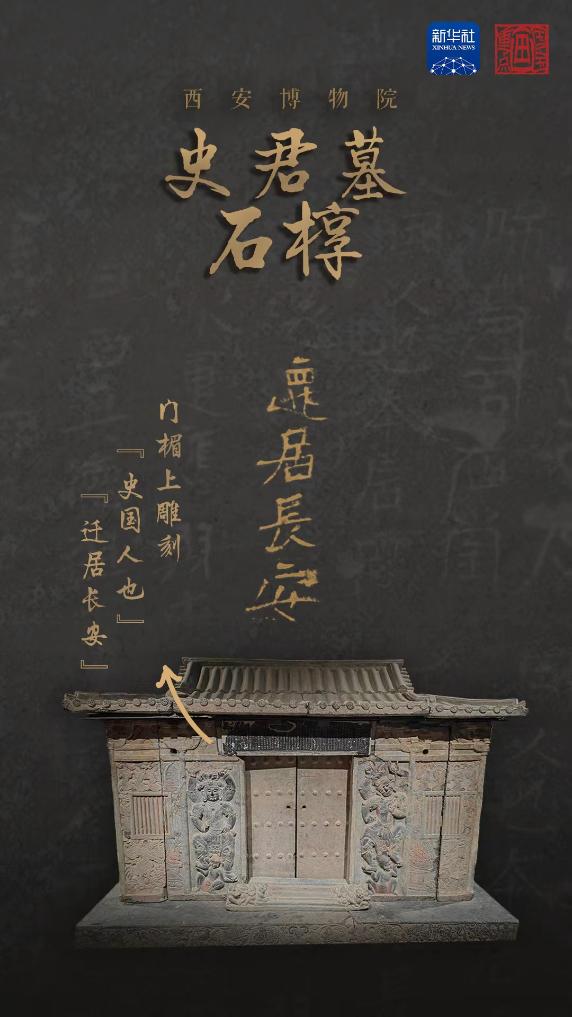 新华社
XINHUA NEWS
西安博物院
史君墓
石椁
遷居長安
门楣上雕刻
『史国人也』
『迁居长安』